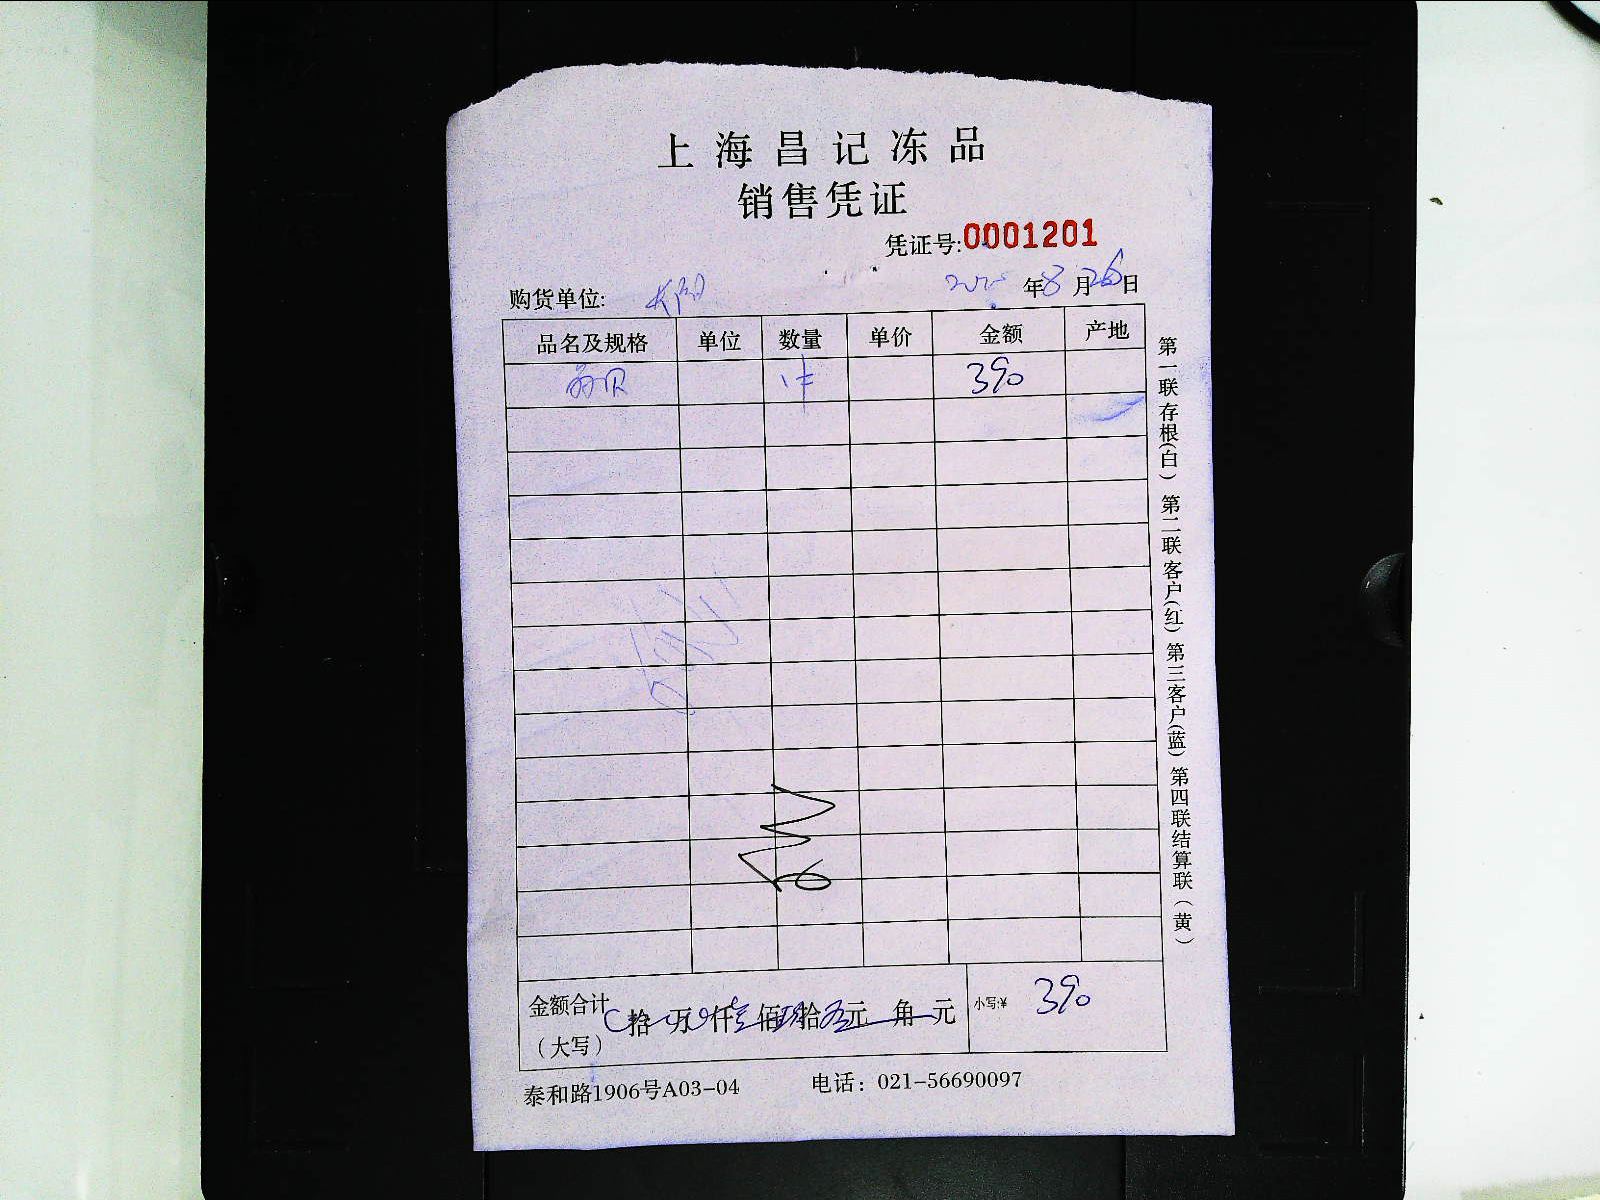 上海昌记冻品
销售凭证
凭证号:0001201
购货单位: 年8月26日
品名及规格 单位 数量 单价 金额 产地
贝 1件 390
金额合计(大写) 拾 万 仟 佰 拾 元 角 元 小写:¥ 390
泰和路1906号A03-04 电话：021-56690097
第一联存根(白) 第二联客户(红) 第三客户(蓝) 第四联结算联(黄)